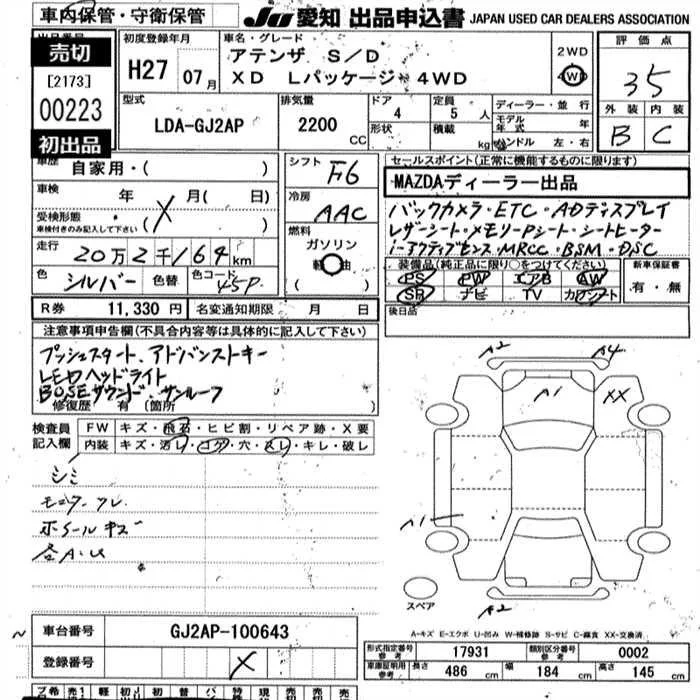 車内保管・守衛保管
JU 愛知 出品申込書 JAPAN USED CAR DEALERS ASSOCIATION
売切
[2173]
00223
初出品
初度登録年月
H27 07月
車名・グレード
アテンザ S/D
XD Lパッケージ 4WD
2WD
4WD
評価点
3.5
外装 内装
B C
型式
LDA-GJ2AP
排気量
2200 CC
ドア 4
形状
定員 5 人
積載 kg
ディーラー・並行
モデル年式 年
ハンドル 左・右
車歴 自家用・( )
車検 年 月( 日)
受検形態
車検付きのみ記入して下さい
( X )
走行
20万2千164km
色 シルバー 色替 色コード 45P
シフト F6
冷房 AAC
燃料
ガソリン
軽油
( )
セールスポイント(正常に機能するものに限ります)
MAZDAディーラー出品
バックカメラ・ETC・ADディスプレイ
レザーシート・メモリPシート・シートヒーター
i-アクティブセンス・MRCC・BSM・DSC
装備品(純正品に限り○をつけてください)
PS PW エアB AW
SR ナビ TV カワシート
新車保証書
有・無
後日品
R券 11,330 円 名変通知期限 月 日
注意事項申告欄(不具合内容等は具体的に記入して下さい)
プッシュスタート、アドバンストキー
LEDヘッドライト
BOSEサウンド・サンルーフ
修復歴 有(箇所 )
検査員記入欄
FW キズ・飛石・ヒビ割・リペア跡・X要
内装 キズ・汚レ・コゲ・穴・スレ・キレ・破レ
シミ
モニター
ホイールキズ
各A・U
A2 A4
A1 XX
A1
A2
スペア
A-キズ E-エクボ U-凹み W-補修跡 S-サビ C-腐食 XX-交換済
車台番号 GJ2AP-100643
登録番号 X
形式指定番号参考 17931 類別区分番号参考 0002
車庫証明用参考 長さ 486 cm 幅 184 cm 高さ 145 cm